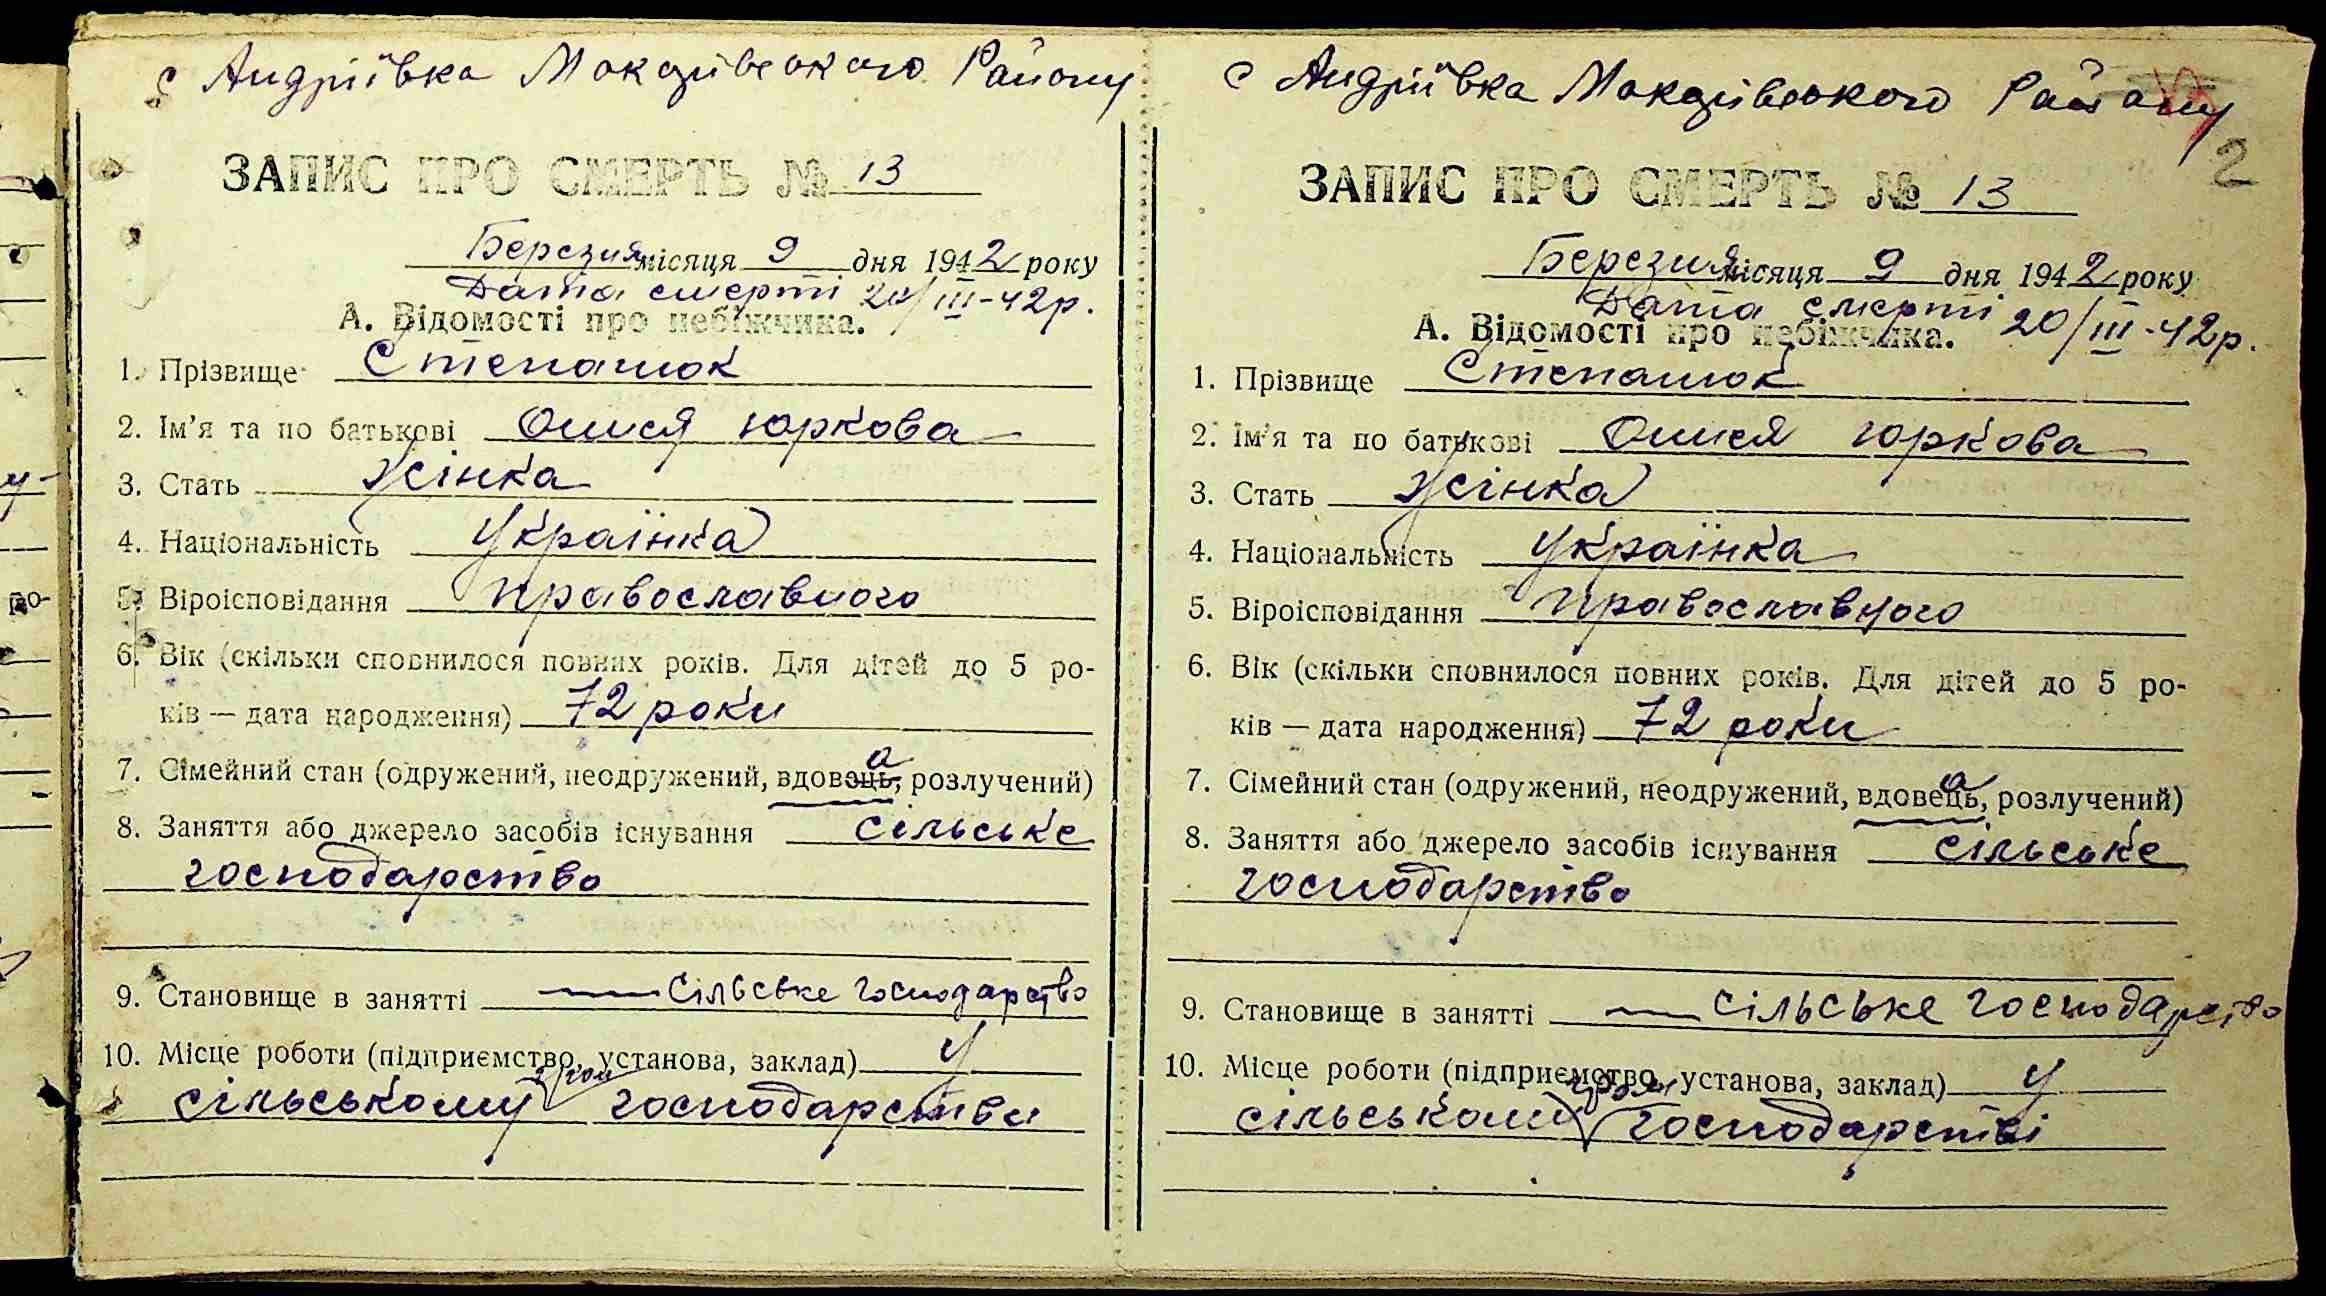 с Андріївка Макарівського Району
ЗАПИС ПРО СМЕРТЬ № 13
Березня місяця 9 дня 1942 року
Дата смерті 20/III-42р.
А. Відомості про небіжчика.
1. Прізвище Степанюк
2. Ім'я та по батькові Олися Юркова
3. Стать Жінка
4. Національність Українка
5. Віроісповідання православного
6. Вік (скільки сповнилося повних років. Для дітей до 5 ро-
ків — дата народження) 72 роки
7. Сімейний стан (одружений, неодружений, вдовець, розлучений)
а
8. Заняття або джерело засобів існування сільське
господарство
9. Становище в занятті сільське господарство
10. Місце роботи (підприємство, установа, заклад) у
сільському господарстві
с Андріївка Макарівського Району
2
ЗАПИС ПРО СМЕРТЬ № 13
Березня місяця 9 дня 1942 року
Дата смерті 20/III-42р.
А. Відомості про небіжчика.
1. Прізвище Степанюк
2. Ім'я та по батькові Олися Юркова
3. Стать Жінка
4. Національність Українка
5. Віроісповідання православного
6. Вік (скільки сповнилося повних років. Для дітей до 5 ро-
ків — дата народження) 72 роки
7. Сімейний стан (одружений, неодружений, вдовець, розлучений)
а
8. Заняття або джерело засобів існування сільське
господарство
9. Становище в занятті сільське господарство
10. Місце роботи (підприємство, установа, заклад) у
гром
сільському господарстві